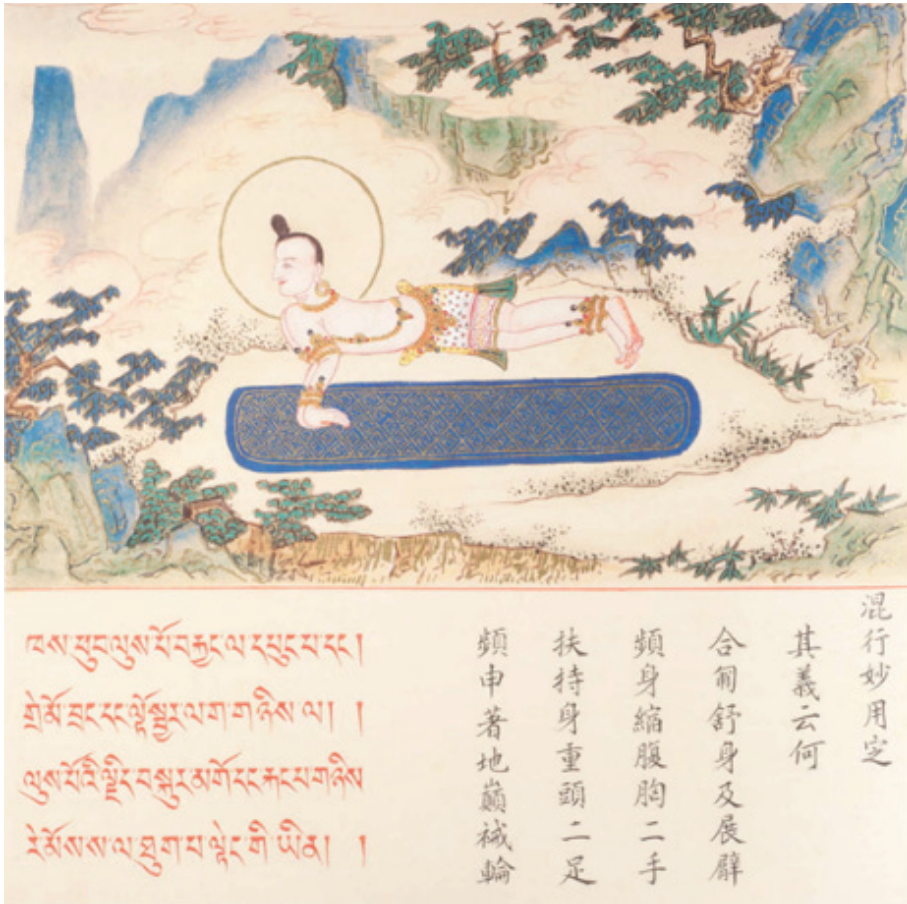 混行妙用定
其義云何
合匐舒身及展臂
頻身縮腹胸二手
扶持身重頭二足
頻申著地巔裓輪
ཁས་ཕུབ་ལུས་པོ་བརྐྱང་ལ་དཔུང་པ་དང་།
གྲེ་མོ་བྲང་དང་ལྟོ་སྦྱར་ལག་གཉིས་ལ། །
ལུས་པོའི་ལྗིད་བསྐུར་མགོ་དང་རྐང་པ་གཉིས
རེ་མོས་ས་ལ་ཐུག་པ་ལྟེང་གི་ཡིན། །